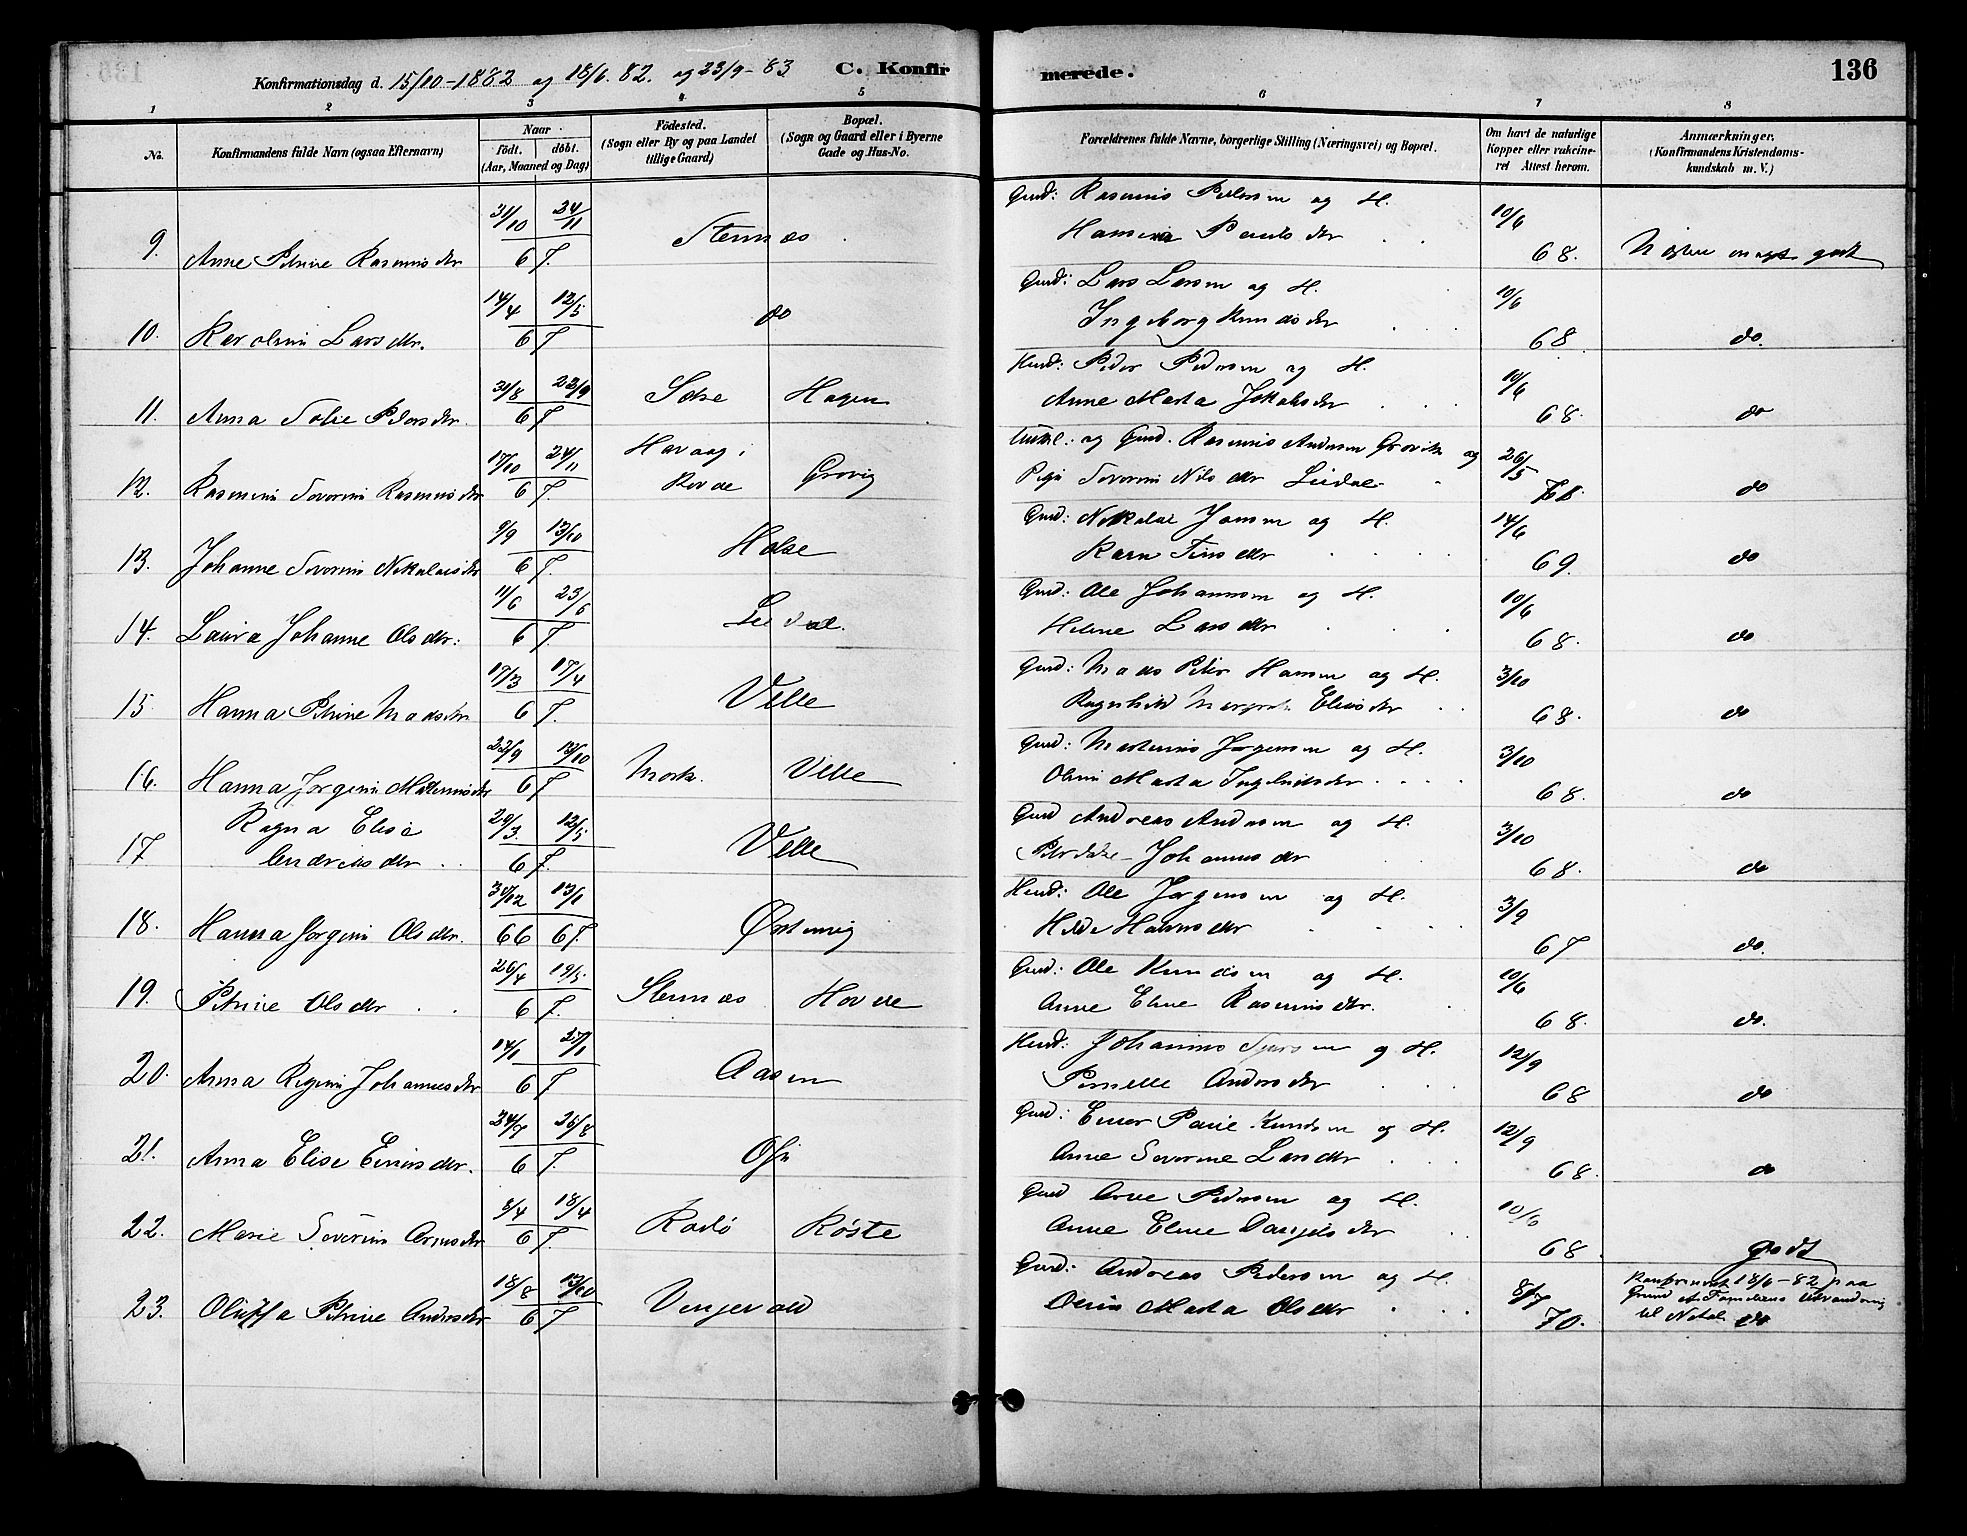 Konfirmationsdag d. 15/10-1882 og 18/6. 82. og 23/9-83 C. Konfirmerede. 136
1 2 3 4 5 6 7 8
No. Konfirmandens fulde Navn (ogsaa Efternavn) Naar födt. döbt. (Aar, Maaned og Dag) Födested. (Sogn eller By og paa Landet tillige Gaard) Bopæl. (Sogn og Gaard eller i Byerne Gade og Hus-No. Forældrenes fulde Navne, borgerlige Stilling (Næringsvei) og Bopæl. Om havt de naturlige Kopper eller vakcineret Attest herom. Anmærkninger. (Konfirmandens Kristendomskundskab m. V.)
9. Anne Petrine Rasmusdtr 31/10 24/11 67. Stennæs Gmd: Rasmus Pedersen og H. 10/6 68.
10. Karoline Larsdtr. 14/4 12/5 67 do Gmd: Lars Larsen og H. Ingeborg Knudsdtr 10/6 68. do.
11. Anna Sofie Pedersdtr. 30/8 22/9 67 Sætre Hagen Husmd: Peder Pedersen og H. Anne Marta Jakobsdtr 10/6 68. do
12. Rasmine Severine Rasmusdtr 17/10 24/11 67. Havaag i Rovde Grovig Ungkl.: og Gmd. Rasmus Andersen Grovik og Pige Severine Nilsdtr Liedal 26/5 do
13. Johanne Severine Nikolaisdtr 9/9 13/10 67. Holse Gmd: Nikolai Jonsen og H. Karn 14/6 69. do
14. Laura Johanne Olsdtr. 11/6 23/6 67. Liedal. Gmd: Ole Johannesen og H. Helene Larsdtr 10/6 68. do
15 Hanna Petrine Madsdtr 17/3 17/4 67. Velle Gmd: Mads Peter Hansen og H. Ragnhild Margrete Eliasdtr 3/10 68. do
16. Hanna Jørgine Martinusdtr 22/9 13/10 67 Mork. Velle Gmd: Martinus Jørgensen og H. Oline Marta Ingebrigtsdtr 3/10 68. do
17 Ragna Elise Andreasdtr 29/3 12/5 67. Velle Gmd Andreas Andersen og H. Johannesdtr 3/10 68. do
18. Hanna Jørgine Olsdtr. 31/12 13/1 66 67. Ørstenvig Husmd: Ole Jørgensen og H. 3/9 67 do.
19. Petrine Olsdtr 26/4 19/5. 67. Stennæs Hovde Gmd: Ole Knudsen og H. Anne Eline Rasmusdtr. 10/6 68. do.
20. Anna Regine Johannesdtr 14/1 27/1 67 Aasen Husmd: Johannes og H. Pernelle Andersdtr 12/9 68 do
21. Anna Elise Einersdtr. 24/7 26/8 67. Ose Gmd: Einer Paul Knudsen og H. Anne Severine Larsdtr 12/9 68. do
22. Marie Severine Arnesdtr 18/4 67. Røste Gmd Arne Pedersen og H. Anne Eline Danielsdtr 10/6 68. godt
23. Oluffa Petrine Andersdtr 18/8 13/10 67 Gmd. Andreas Pedersen og H. Marta Olsdtr 8/7 70. Konfirmeret 18/6-82 paa Grund af Familiens Udvandring til Natal do